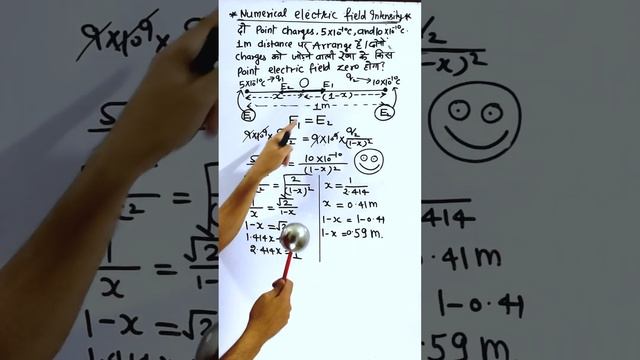 *Numerical electric field Intensity*
दो Point charges, 5×10⁻¹⁰C, and 10×10⁻¹⁰C.
1m distance पर Arrange हैं। दोनों
charges को जोड़ने वाली रेखा के किस
Point electric field zero होगा?
5×10⁻¹⁰C → q₁ O q₂ → 10×10⁻¹⁰C
E₂ E₁
x (1-x)
1m
E₁ E₂
E₁ = E₂
9×10⁹× = 9×10⁹× q₂/(1-x)²
5 = 10×10⁻¹⁰/(1-x)²
= √2/(1-x)²
1/x = √2/1-x
1-x = √2
1.414x
2.414x = 1
x = 1/2.414
x = 0.41m
1-x = 1-0.41
1-x = 0.59m.